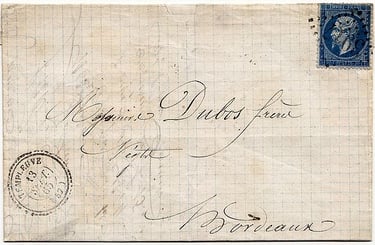 Messieurs Dubos frère
Négts
Bordeaux
TEMPLEUVE
13